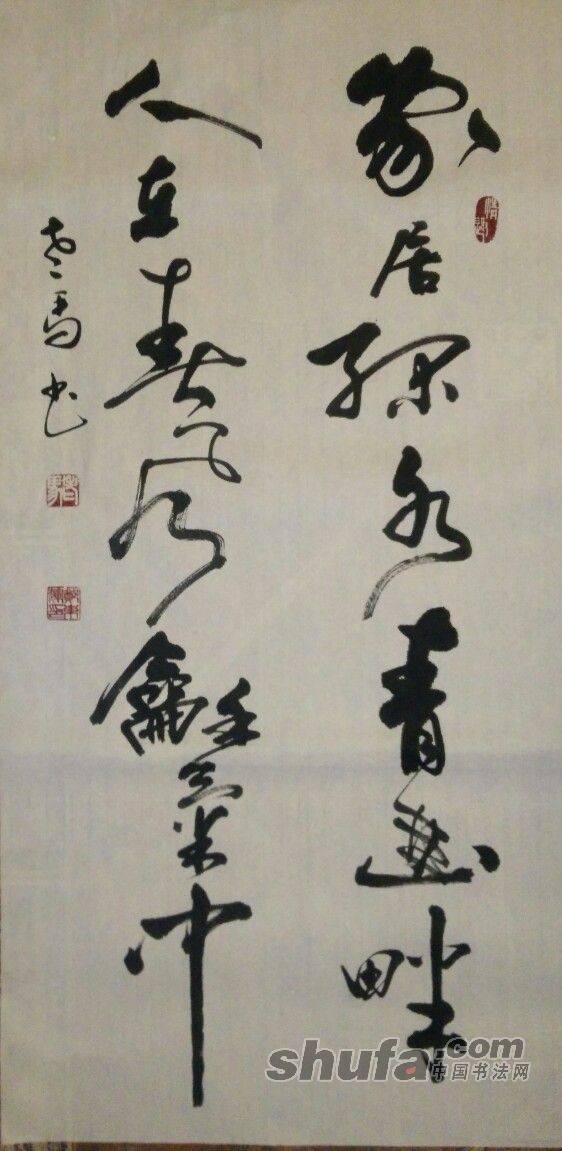 家居綠水青山畔
人在春風龢氣中
老馬书
shufa.com
中国书法网